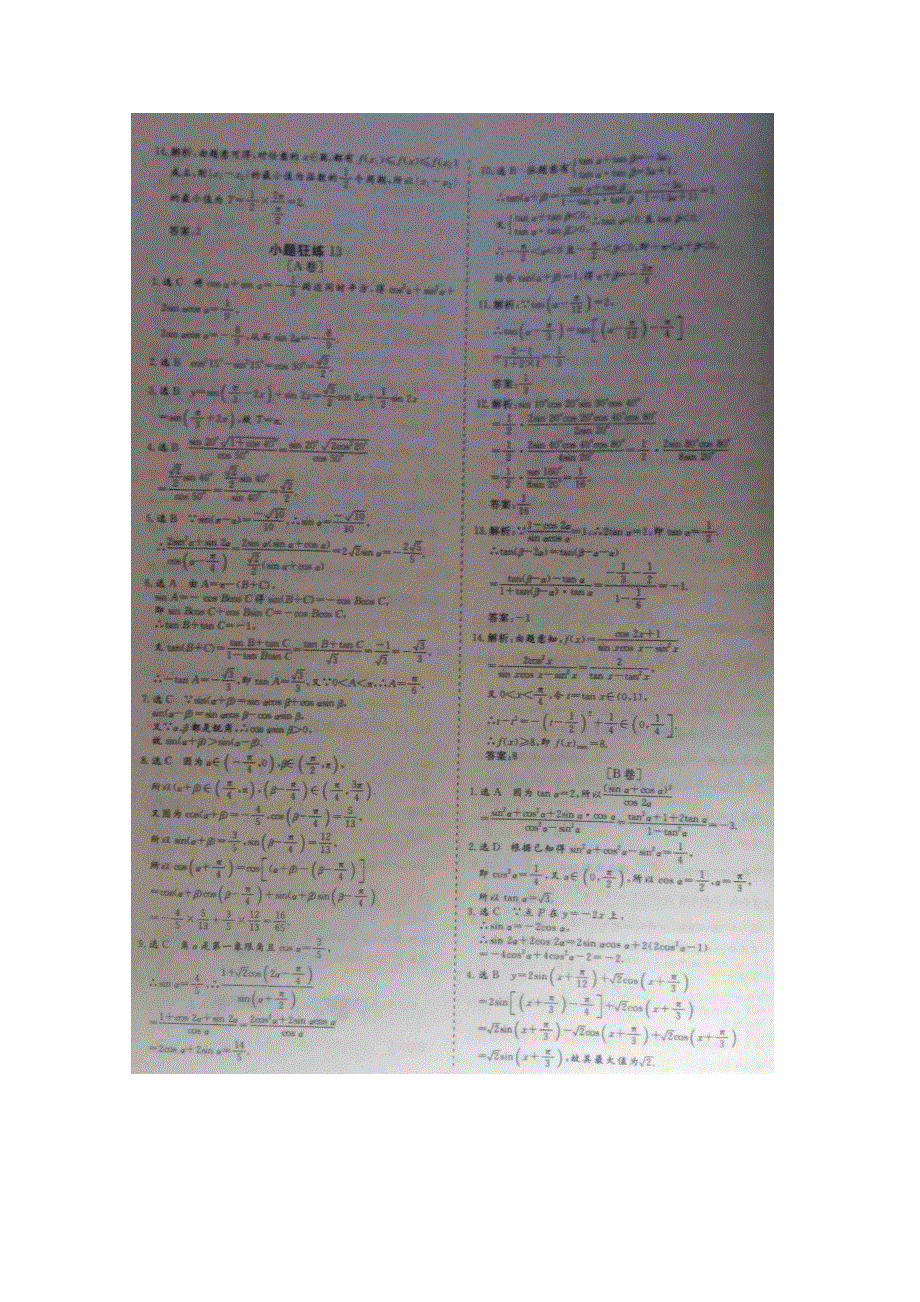 14.解析:由题意可得,对任意的x∈R,都有 f(x₁)≤f(x)≤f(x₂)
成立,则|x₁-x₂|的最小值为函数的1/2个周期,所以|x₁-x₂|
的最小值为 T=1/2×2π/(π/2)=2.
答案:2
小题狂练 13
[A卷]
1.选C 将cos α+sin α=-1/3两边同时平方,得cos²α+sin²α+
2sin αcos α=1/9,
2sin αcos α=-8/9,从而 sin 2α=-8/9.
2.选B cos²15°-sin²15°=cos 30°=√3/2.
3.选B y=sin(π/3-2x)+sin 2x=√3/2cos 2x+1/2sin 2x
=sin(π/3+2x),故T=π.
4.选B sin 20°√(1+cos 40°)/cos 50°=sin 20°√(2cos²20°)/cos 50°
=(√2/2 sin 40°)/cos 50°=(√2/2 sin 40°)/sin 40°=√2/2.
5.选B ∵sin(π-α)=-√10/10,∴sin α=-√10/10,
∴(2sin²α+sin 2α)/cos(α-π/4)=2sin α(sin α+cos α)/(√2/2(sin α+cos α))=2√2sin α=-2√5/5.
6.选A 由A=π-(B+C),
sin A=-cos Bcos C得sin(B+C)=-cos Bcos C,
即sin Bcos C+cos Bsin C=-cos Bcos C,
∴tan B+tan C=-1.
又tan(B+C)=(tan B+tan C)/(1-tan Btan C)=(tan B+tan C)/√3=-1/√3=-√3/3,
∴-tan A=-√3/3,即tan A=√3/3,又∵0<A<π,∴A=π/6.
7.选C ∵sin(α+β)=sin αcos β+cos αsin β,
sin(α-β)=sin αcos β-cos αsin β,
又∵α,β都是锐角,∴cos αsin β>0,
故sin(α+β)>sin(α-β).
8.选C 因为α∈(-π/4,0),β∈(π/2,π),
所以(α+β)∈(π/4,π),(β-π/4)∈(π/4,3π/4)
又因为cos(α+β)=-4/5,cos(β-π/4)=5/13,
所以sin(α+β)=3/5,sin(β-π/4)=12/13,
所以cos(α+π/4)=cos[(α+β)-(β-π/4)]
=cos(α+β)cos(β-π/4)+sin(α+β)sin(β-π/4)
=-4/5×5/13+3/5×12/13=16/65.
9.选C 角α是第一象限角且cos α=3/5,
∴sin α=4/5,∴(1+√2cos(2α-π/4))/sin(α+π/2)
=(1+cos 2α+sin 2α)/cos α=(2cos²α+2sin αcos α)/cos α
=2cos α+2sin α=14/5.
10.选B 依题意有{tan α+tan β=-3a, tan α·tan β=3a+1,
∴tan(α+β)=(tan α+tan β)/(1-tan α·tan β)=-3a/(1-(3a+1))=1.
又{tan α+tan β<0, tan α·tan β>0, ∴tan α<0且tan β<0,
∴-π/2<α<0且-π/2<β<0,即-π<α+β<0,
结合tan(α+β)=1,得α+β=-3π/4
11.解析:∵tan(α-π/12)=2,
∴tan(α-π/3)=tan[(α-π/12)-π/4]
=(2-1)/(1+2×1)=1/3
答案:1/3
12.解析:sin 10°cos 20°sin 30°cos 40°
=1/2·2sin 20°cos 20°cos 40°cos 80°/2sin 20°
=1/2·2sin 40°cos 40°cos 80°/4sin 20°=1/2·2sin 80°cos 80°/8sin 20°
=1/2·sin 160°/8sin 20°=1/16.
答案:1/16
13.解析:∵(1-cos 2α)/(sin αcos α)=1,∴2tan α=1,即tan α=1/2.
∴tan(β-2α)=tan(β-α-α)
=(tan(β-α)-tan α)/(1+tan(β-α)·tan α)=(-1/3-1/2)/(1-1/6)=-1.
答案:-1
14.解析:由题意知,f(x)=(cos 2x+1)/(sin xcos x-sin²x)
=2cos²x/(sin xcos x-sin²x)=2/(tan x-tan²x),
又0<x<π/4,令t=tan x∈(0,1),
∴t-t²=-(t-1/2)²+1/4∈(0,1/4],
∴f(x)≥8,即f(x)min=8.
答案:8
[B卷]
1.选A 因为tan α=2,所以(sin α+cos α)²/cos 2α
=(sin²α+cos²α+2sin α·cos α)/(cos²α-sin²α)=(tan²α+1+2tan α)/(1-tan²α)=-3.
2.选D 根据已知得sin²α+cos²α-sin²α=1/4,
即cos²α=1/4,又α∈(0,π/2),所以cos α=1/2,α=π/3,
所以tan α=√3.
3.选C ∵点P在y=-2x上,
∴sin α=-2cos α,
∴sin 2α+2cos 2α=2sin αcos α+2(2cos²α-1)
=-4cos²α+4cos²α-2=-2.
4.选B y=2sin(x+π/12)+√2cos(x+π/3)
=2sin[(x+π/3)-π/4]+√2cos(x+π/3)
=√2sin(x+π/3)-√2cos(x+π/3)+√2cos(x+π/3)
=√2sin(x+π/3),故其最大值为√2.